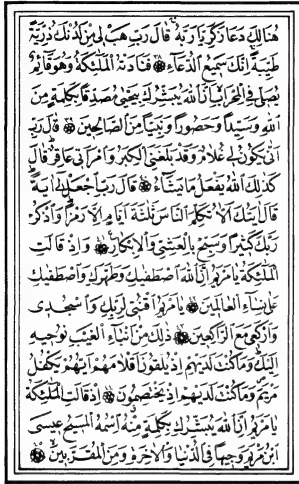 هُنَالِكَ دَعَا زَكَرِيَّا رَبَّهُ قَالَ رَبِّ هَبْ لِي مِنْ لَدُنْكَ ذُرِّيَّةً
طَيِّبَةً اِنَّكَ سَمِيعُ الدُّعَاءِ ۝ فَنَادَتْهُ الْمَلٰئِكَةُ وَهُوَ قَائِمٌ
يُصَلِّي فِي الْمِحْرَابِ اَنَّ اللهَ يُبَشِّرُكَ بِيَحْيٰى مُصَدِّقًا بِكَلِمَةٍ مِنَ
اللهِ وَسَيِّدًا وَحَصُورًا وَنَبِيًّا مِنَ الصَّالِحِينَ ۝ قَالَ رَبِّ
اَنّٰى يَكُونُ لِي غُلَامٌ وَقَدْ بَلَغَنِيَ الْكِبَرُ وَامْرَاَتِي عَاقِرٌ قَالَ
كَذٰلِكَ اللهُ يَفْعَلُ مَا يَشَاءُ ۝ قَالَ رَبِّ اجْعَلْ لِي اٰيَةً
قَالَ اٰيَتُكَ اَلَّا تُكَلِّمَ النَّاسَ ثَلٰثَةَ اَيَّامٍ اِلَّا رَمْزًا وَاذْكُرْ
رَبَّكَ كَثِيرًا وَسَبِّحْ بِالْعَشِيِّ وَالْاِبْكَارِ ۝ وَاِذْ قَالَتِ
الْمَلٰئِكَةُ يَا مَرْيَمُ اِنَّ اللهَ اصْطَفٰيكِ وَطَهَّرَكِ وَاصْطَفٰيكِ
عَلٰى نِسَاءِ الْعَالَمِينَ ۝ يَا مَرْيَمُ اقْنُتِي لِرَبِّكِ وَاسْجُدِي
وَارْكَعِي مَعَ الرَّاكِعِينَ ۝ ذٰلِكَ مِنْ اَنْبَاءِ الْغَيْبِ نُوحِيهِ
اِلَيْكَ وَمَا كُنْتَ لَدَيْهِمْ اِذْ يُلْقُونَ اَقْلَامَهُمْ اَيُّهُمْ يَكْفُلُ
مَرْيَمَ وَمَا كُنْتَ لَدَيْهِمْ اِذْ يَخْتَصِمُونَ ۝ اِذْ قَالَتِ الْمَلٰئِكَةُ
يَا مَرْيَمُ اِنَّ اللهَ يُبَشِّرُكِ بِكَلِمَةٍ مِنْهُ اسْمُهُ الْمَسِيحُ عِيسَى
ابْنُ مَرْيَمَ وَجِيهًا فِي الدُّنْيَا وَالْاٰخِرَةِ وَمِنَ الْمُقَرَّبِينَ ۝